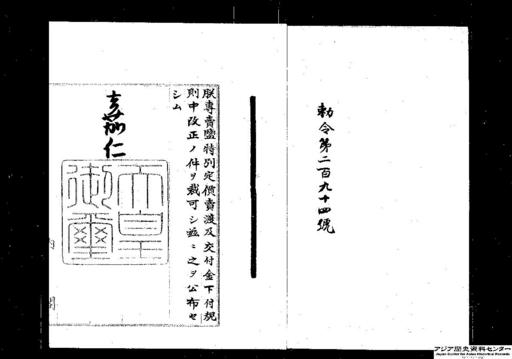 勅令第二百九十四號
朕専賣鹽特別定價賣渡及交付金下付規
則中改正ノ件ヲ裁可シ茲ニ之ヲ公布セ
シム
嘉仁
天皇
御璽
内閣
アジア歴史資料センター
Japan Center for Asian Historical Records